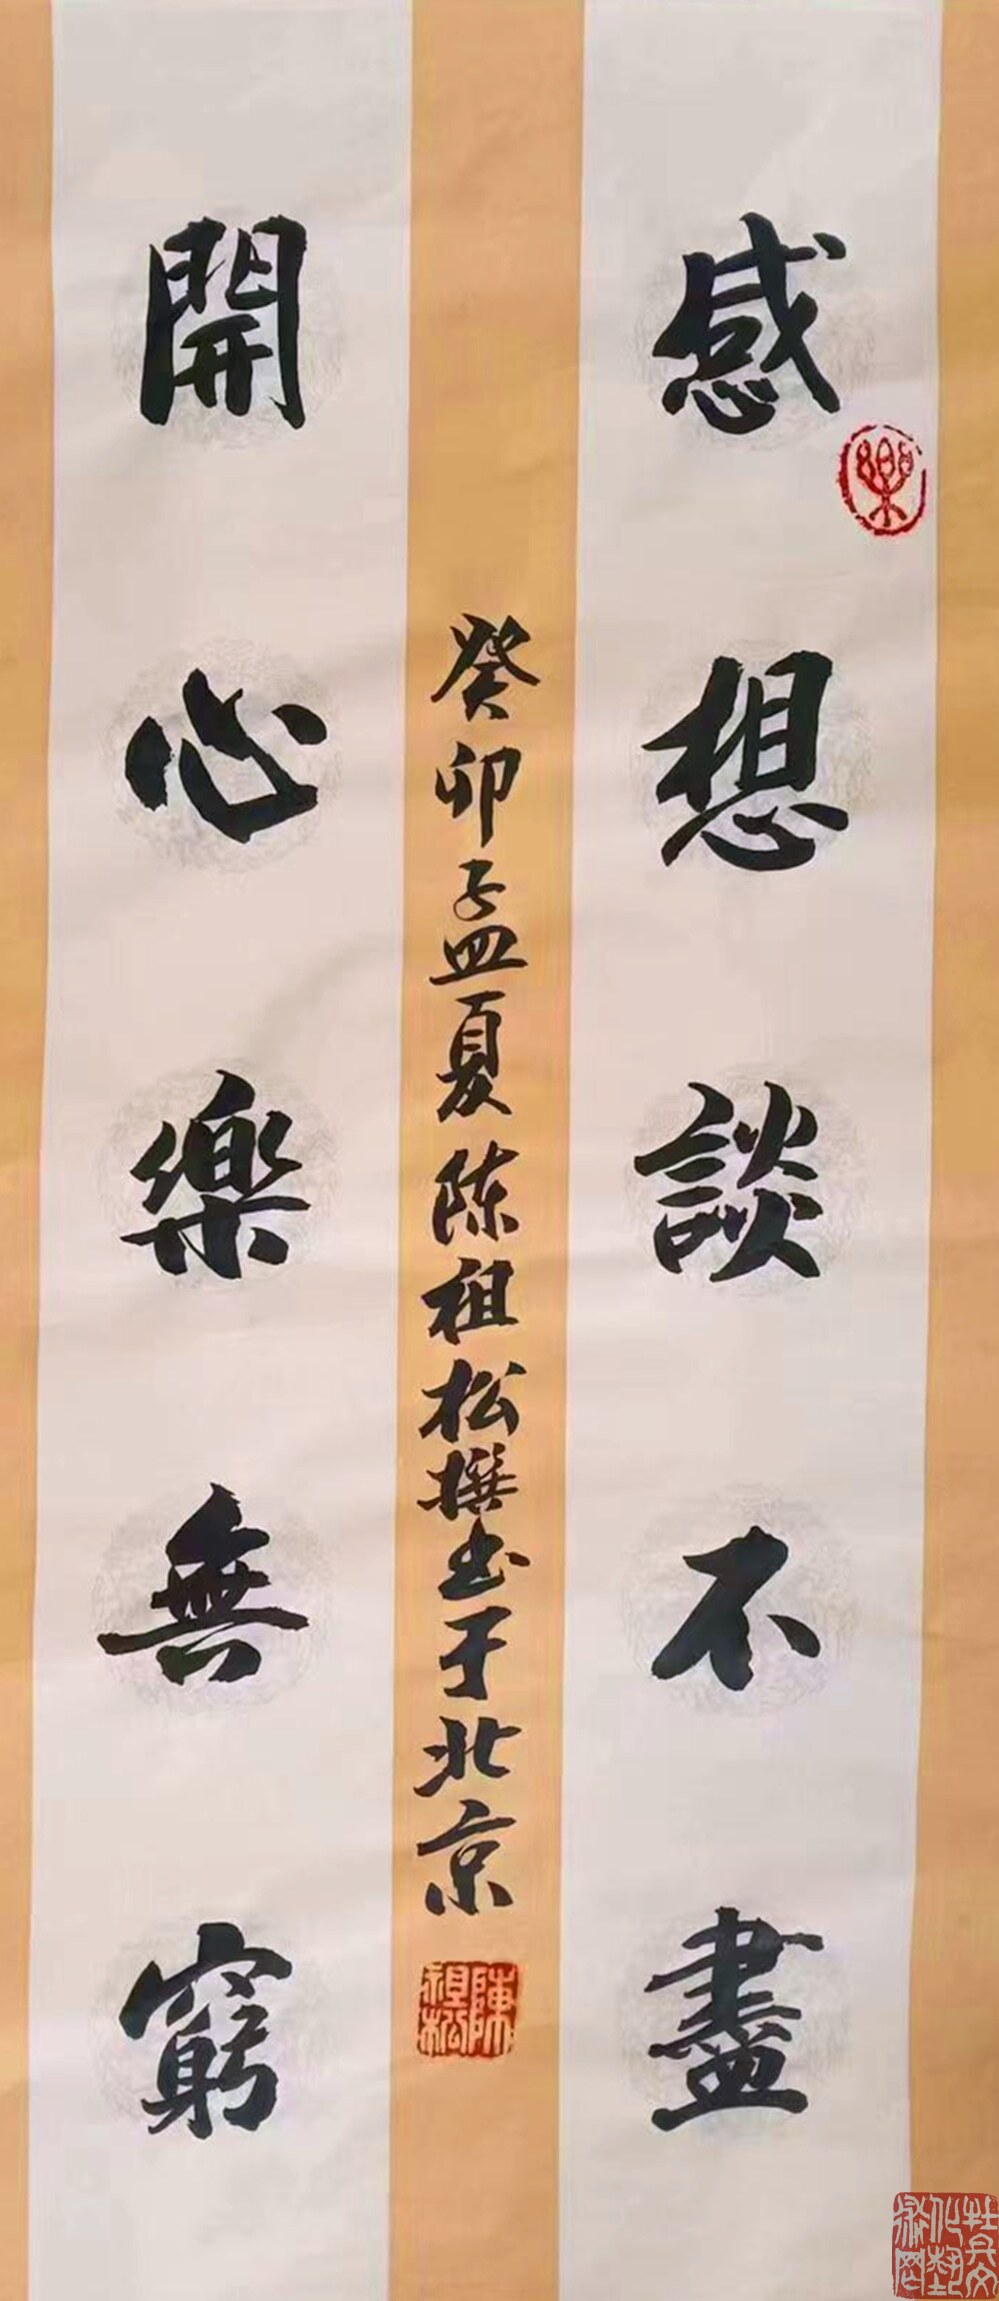 感想談不盡
開心樂無窮
癸卯孟夏陈祖松撰书于北京
樂
陳祖松